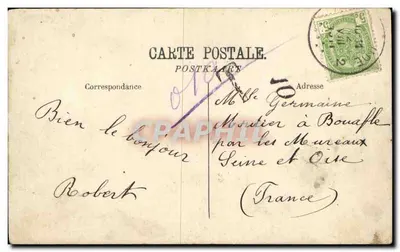 CARTE POSTALE.
POSTKAART
Correspondance
Adresse
Bien le bonjour
Robert
10
Mlle Germaine
Moutier à Bouafle
par les Mureaux
Seine et Oise
(France)